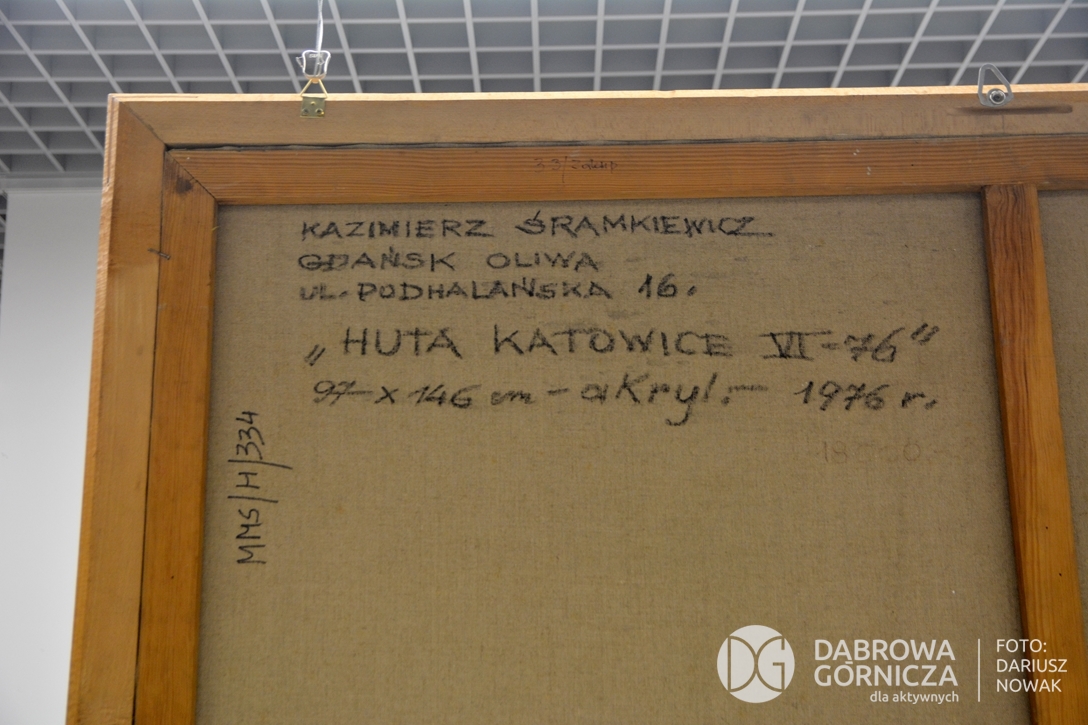 KAZIMIERZ ŚRAMKIEWICZ
GDAŃSK OLIWA
UL. PODHALAŃSKA 16.
„HUTA KATOWICE VI-76”
97 x 146 cm - akryl. - 1976 r.
MMS/H/334
DABROWA
GÓRNICZA
dla aktywnych
FOTO:
DARIUSZ
NOWAK